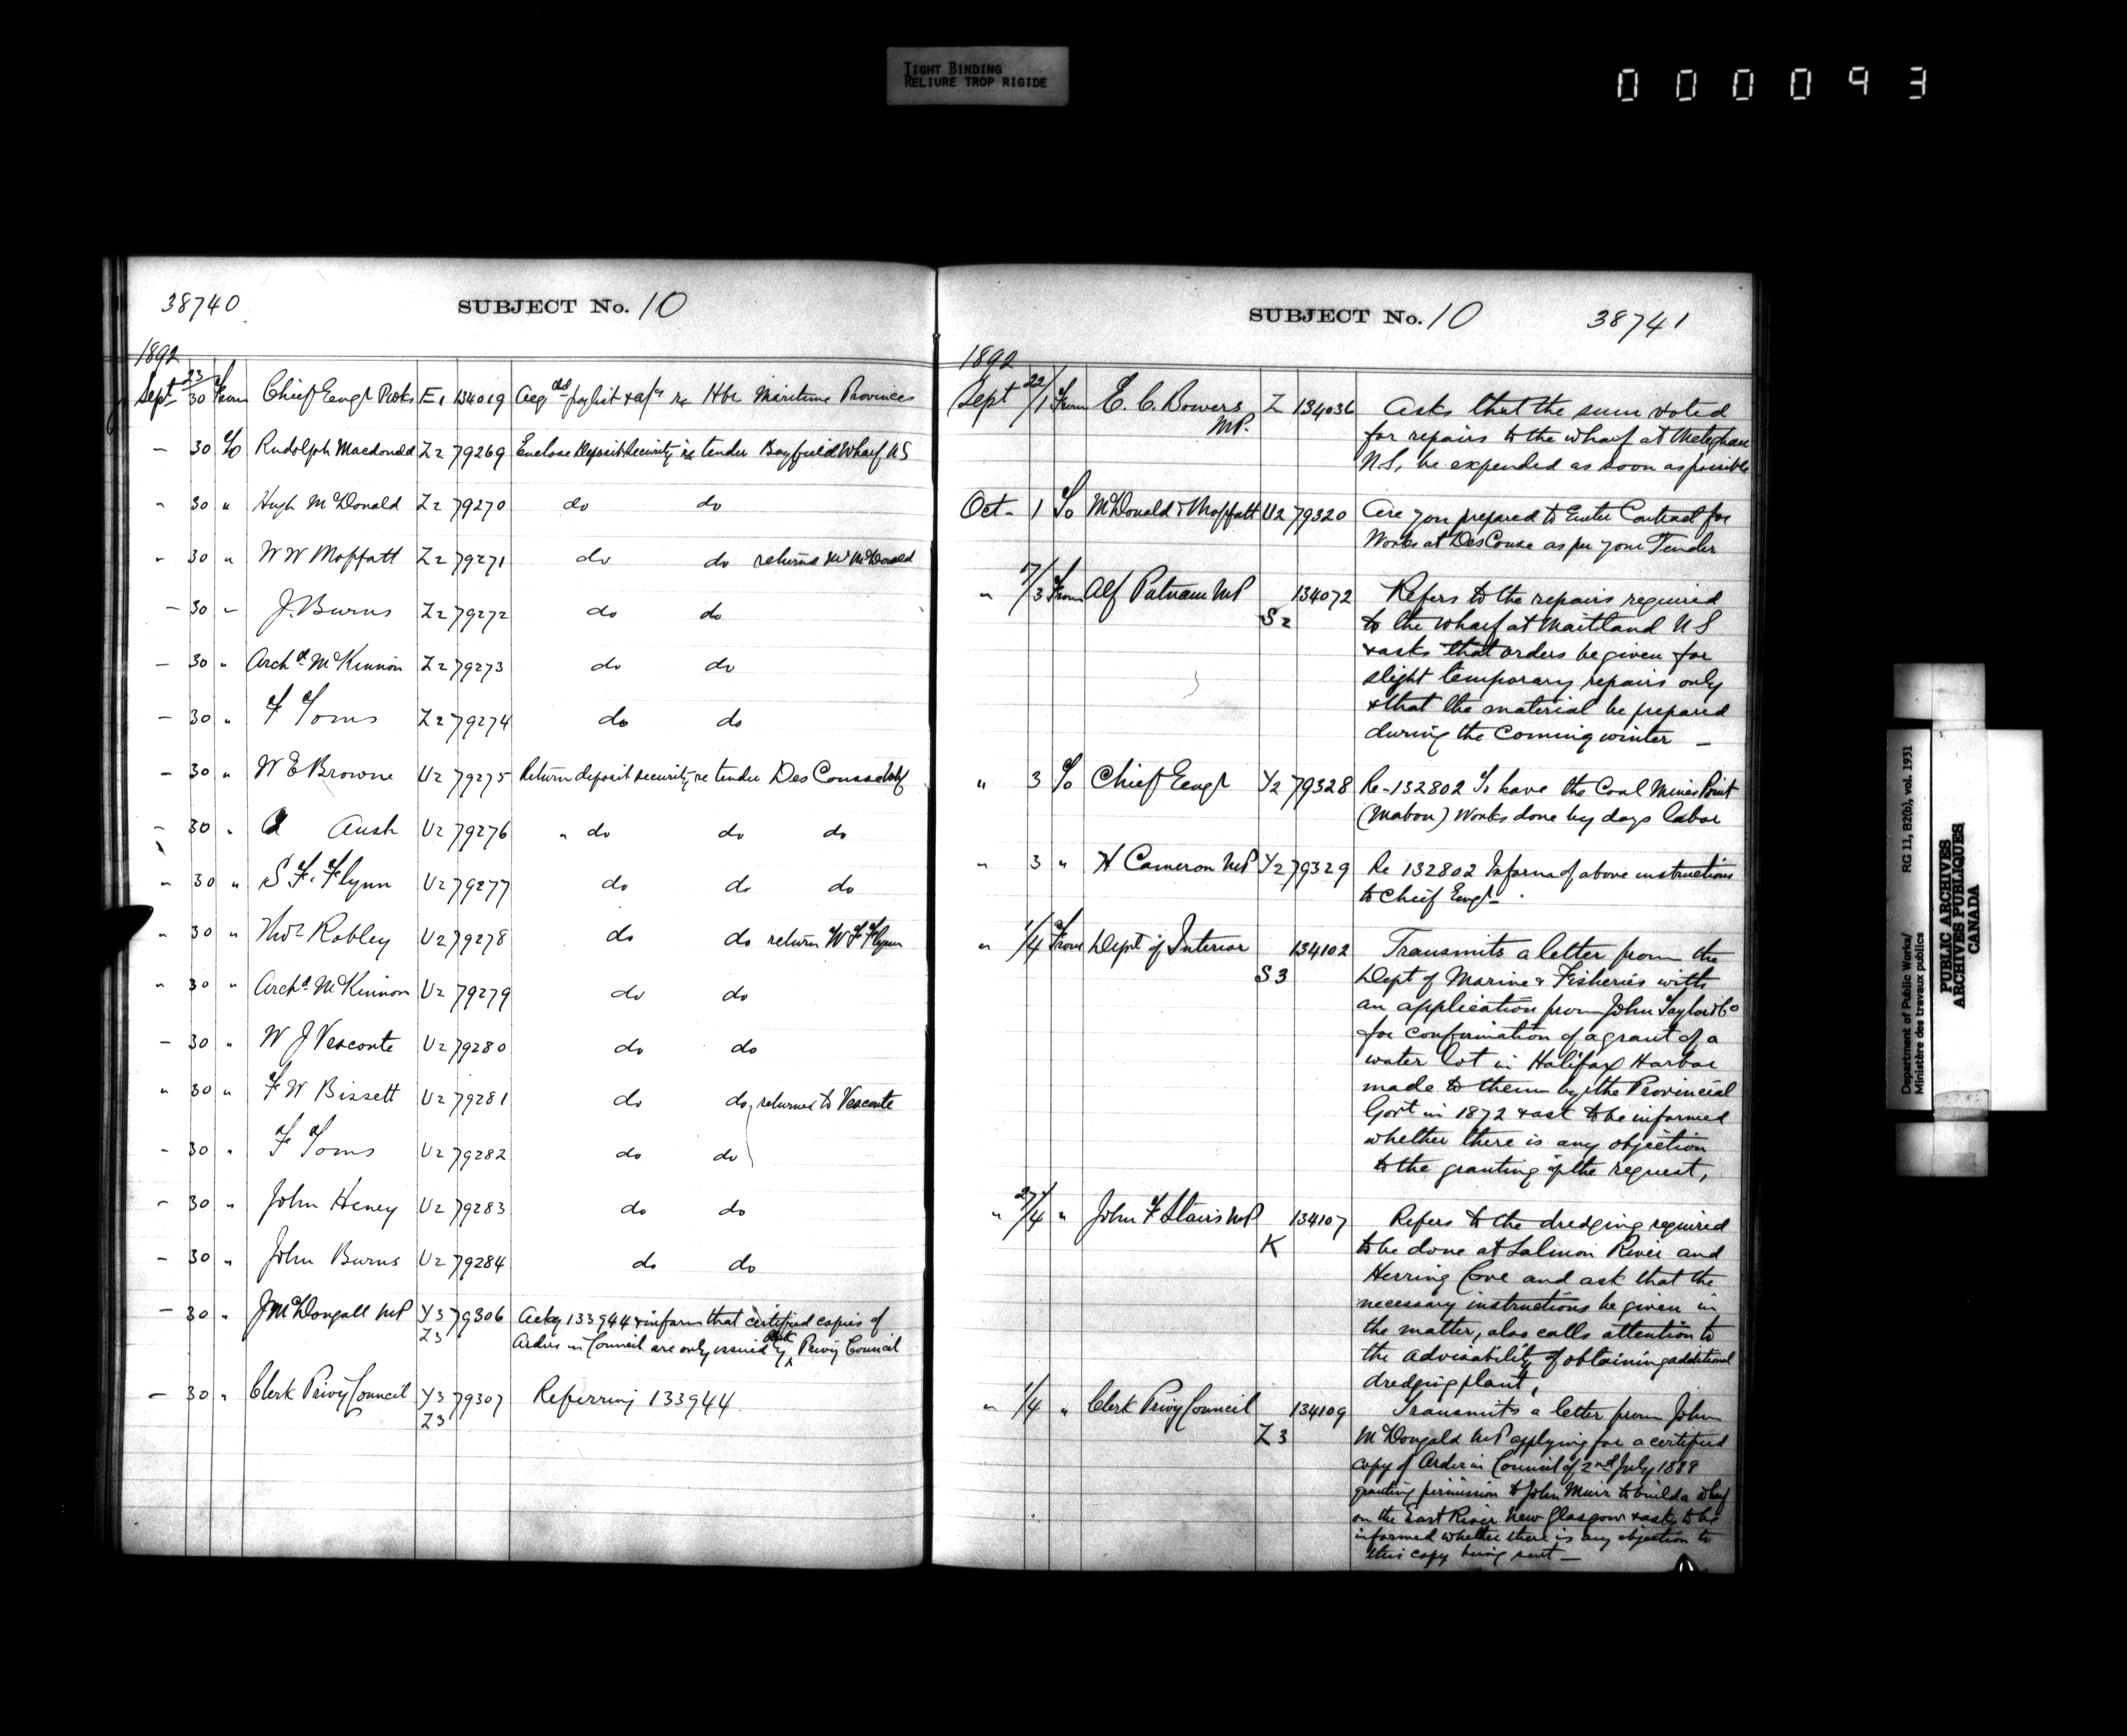 TIGHT BINDING
RELIURE TROP RIGIDE
000093
38740 SUBJECT No. 10
1892
Sept 23/30 From Chief Engr Pub Wks E1 134019 re Hbr Maritime Provinces
— 30 To Rudolph Macdonald Z2 79269 Enclose Deposit Security re tender Bayfield Wharf NS
" 30 " Hugh McDonald Z2 79270 do do
" 30 " W W Moffatt Z2 79271 do do returns McDonald
— 30 " J. Burns Z2 79272 do do
— 30 " Archd McKinnon Z2 79273 do do
— 30 " F Toms Z2 79274 do do
— 30 " W E Browne U2 79275 Return deposit security re tender Des Cousse Whf
— 30 " U2 79276 " do do do
" 30 " S F. Flynn U2 79277 do do do
" 30 " Thos Robley U2 79278 do do return W F Flynn
" 30 " Archd McKinnon U2 79279 do do
— 30 " W J Vesconte U2 79280 do do
" 30 " F W Bissett U2 79281 do do, returned to Vesconte
- 30 " F Toms U2 79282 do do
— 30 " John Heney U2 79283 do do
— 30 " John Burns U2 79284 do do
— 30 " J McDougall MP Y3 79306 Ackg 133944 & inform that certified copies of
Z3 Orders in Council are only issued by Clerk Privy Council
— 30 " Clerk Privy Council Y3 79307 Referring 133944
Z3
SUBJECT No. 10 38741
1892
Sept 22/1 From E. C. Bowers Z 134036 Asks that the sum voted
MP. for repairs to the wharf at Meteghan
NS, be expended as soon as possible
Oct - 1 To McDonald & Moffatt U2 79320 Are you prepared to Enter Contract for
Works at Des Couse as per your Tender
" 7/3 From Alf Putnam MP 134072 Refers to the repairs required
S2 to the wharf at Maitland N S
& asks that orders be given for
slight temporary repairs only
& that the material be prepared
during the coming winter —
" 3 To Chief Engr Y2 79328 Re-132802 To have the Coal Mines Point
(Mabou) Works done by days labor
" 3 " H Cameron MP Y2 79329 Re 132802 Informs of above instructions
to Chief Engr
" 1/4 From Dept of Interior 134102 Transmits a letter from the
S3 Dept of Marine & Fisheries with
an application from John Taylor & Co
for confirmation of a grant of a
water lot in Halifax Harbor
made to them by the Provincial
Govt in 1872 & ask to be informed
whether there is any objection
to the granting of the request,
" 27/4 " John F Stairs MP 134107 Refers to the dredging required
K to be done at Salmon River and
Herring Cove and ask that the
necessary instructions be given in
the matter, also calls attention to
the advisability of obtaining additional
dredging plant,
" 1/4 " Clerk Privy Council 134109 Transmits a letter from John
Z3 McDougald MP applying for a certified
copy of Order in Council of 2nd July 1889
granting permission to John Muir to build a whf
on the East River New Glasgow & asks to be
informed whether there is any objection to
this copy being sent —
Department of Public Works/ RG 11, B2(b), vol. 1931
Ministère des travaux publics
PUBLIC ARCHIVES
ARCHIVES PUBLIQUES
CANADA